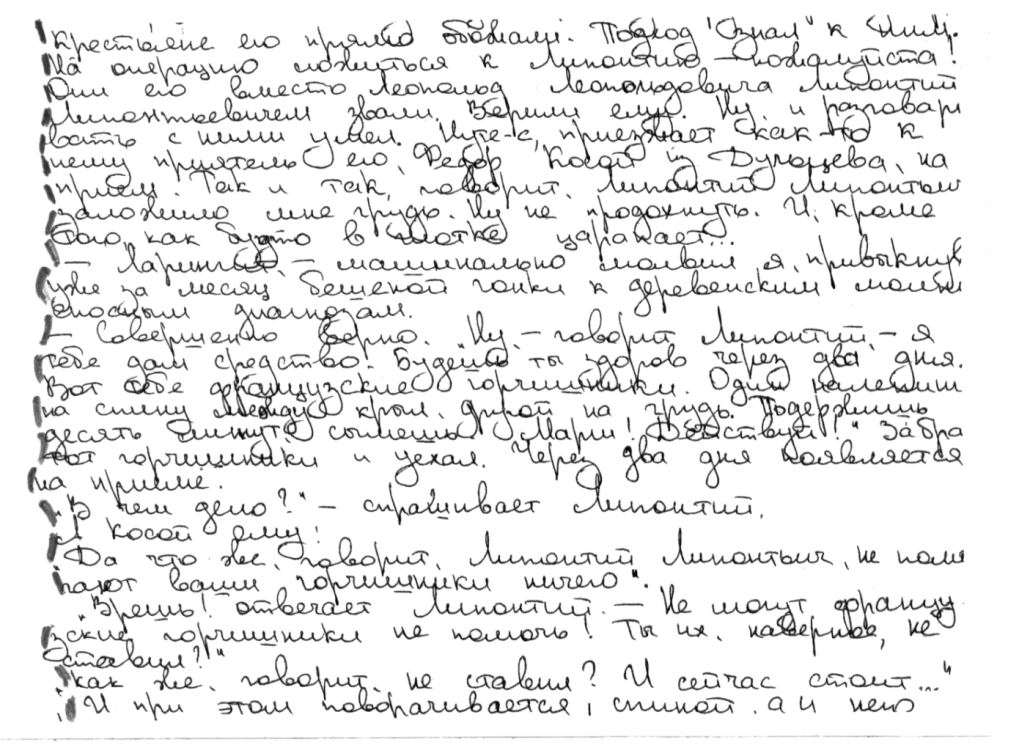 Крестьяне его прямо обожали. Подход знал к ним.
На операцию ложиться к Липонтию – пожалуйста!
Они его вместо Леопольд Леопольдовича Липонтий
Липонтьевичем звали. Верили ему. Ну, и разговари
вать с ними умел. Нуте-с, приезжает как-то к
нему приятель его, Федор Косой из Дульцева, на
прием. Так и так, говорит, Липонтий Липонтьич
заложило мне грудь. Ну не продохнуть. И, кроме
того, как будто в глотке царапает...
– Ларингит, – машинально молвил я, привыкнув
уже за месяц бешеной гонки к деревенским молни
еносным диагнозам.
– Совершенно верно. „Ну, – говорит Липонтий, – я
тебе дам средство. Будешь ты здоров через два дня.
Вот тебе французские горчишники. Один налепишь
на спину между крыл, другой на грудь. Подержишь
десять минут, сымешь. Марш! Действуй!" Забрал
тот горчишники и уехал. Через два дня появляется
на приеме.
„В чем дело?" – спрашивает Липонтий.
А Косой ему:
„Да что же, говорит, Липонтий Липонтьич, не помо
гают ваши горчишники ничего".
„Врешь! отвечает Липонтий. – Не могут францу
зские горчишники не помочь! Ты их, наверное, не
ставил?"
„Как же, говорит, не ставил? И сейчас стоит..."
„И при этом поворачивается, спиной, а у него